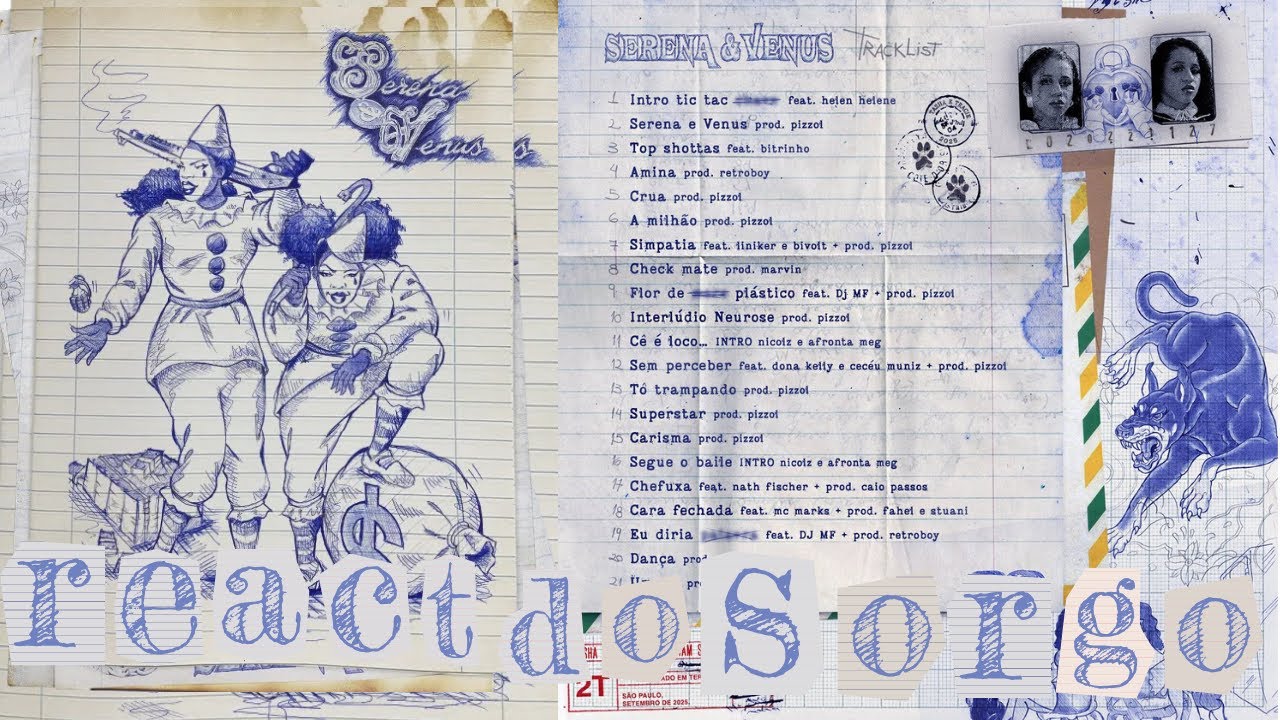 Serena
& Venus
s
SERENA & VENUS TRACKLIST
1 Intro tic tac feat. helen helene
2 Serena e Venus prod. pizzol
3 Top shottas feat. bitrinho
4 Amina prod. retroboy
5 Crua prod. pizzol
6 A milhão prod. pizzol
7 Simpatia feat. liniker e bivolt + prod. pizzol
8 Check mate prod. marvin
9 Flor de plástico feat. Dj MF + prod. pizzol
10 Interlúdio Neurose prod. pizzol
11 Cê é loco... INTRO nicolz e afronta meg
12 Sem perceber feat. dona kelly e cecéu muniz + prod. pizzol
13 Tô trampando prod. pizzol
14 Superstar prod. pizzol
15 Carisma prod. pizzol
16 Segue o baile INTRO nicolz e afronta meg
17 Chefuxa feat. nath fischer + prod. caio passos
18 Cara fechada feat. mc marks + prod. fahel e stuani
19 Eu diria feat. DJ MF + prod. retroboy
20 Dança
21
2025
$
react do Sorgo
2T
SÃO PAULO,
SETEMBRO DE 2025.